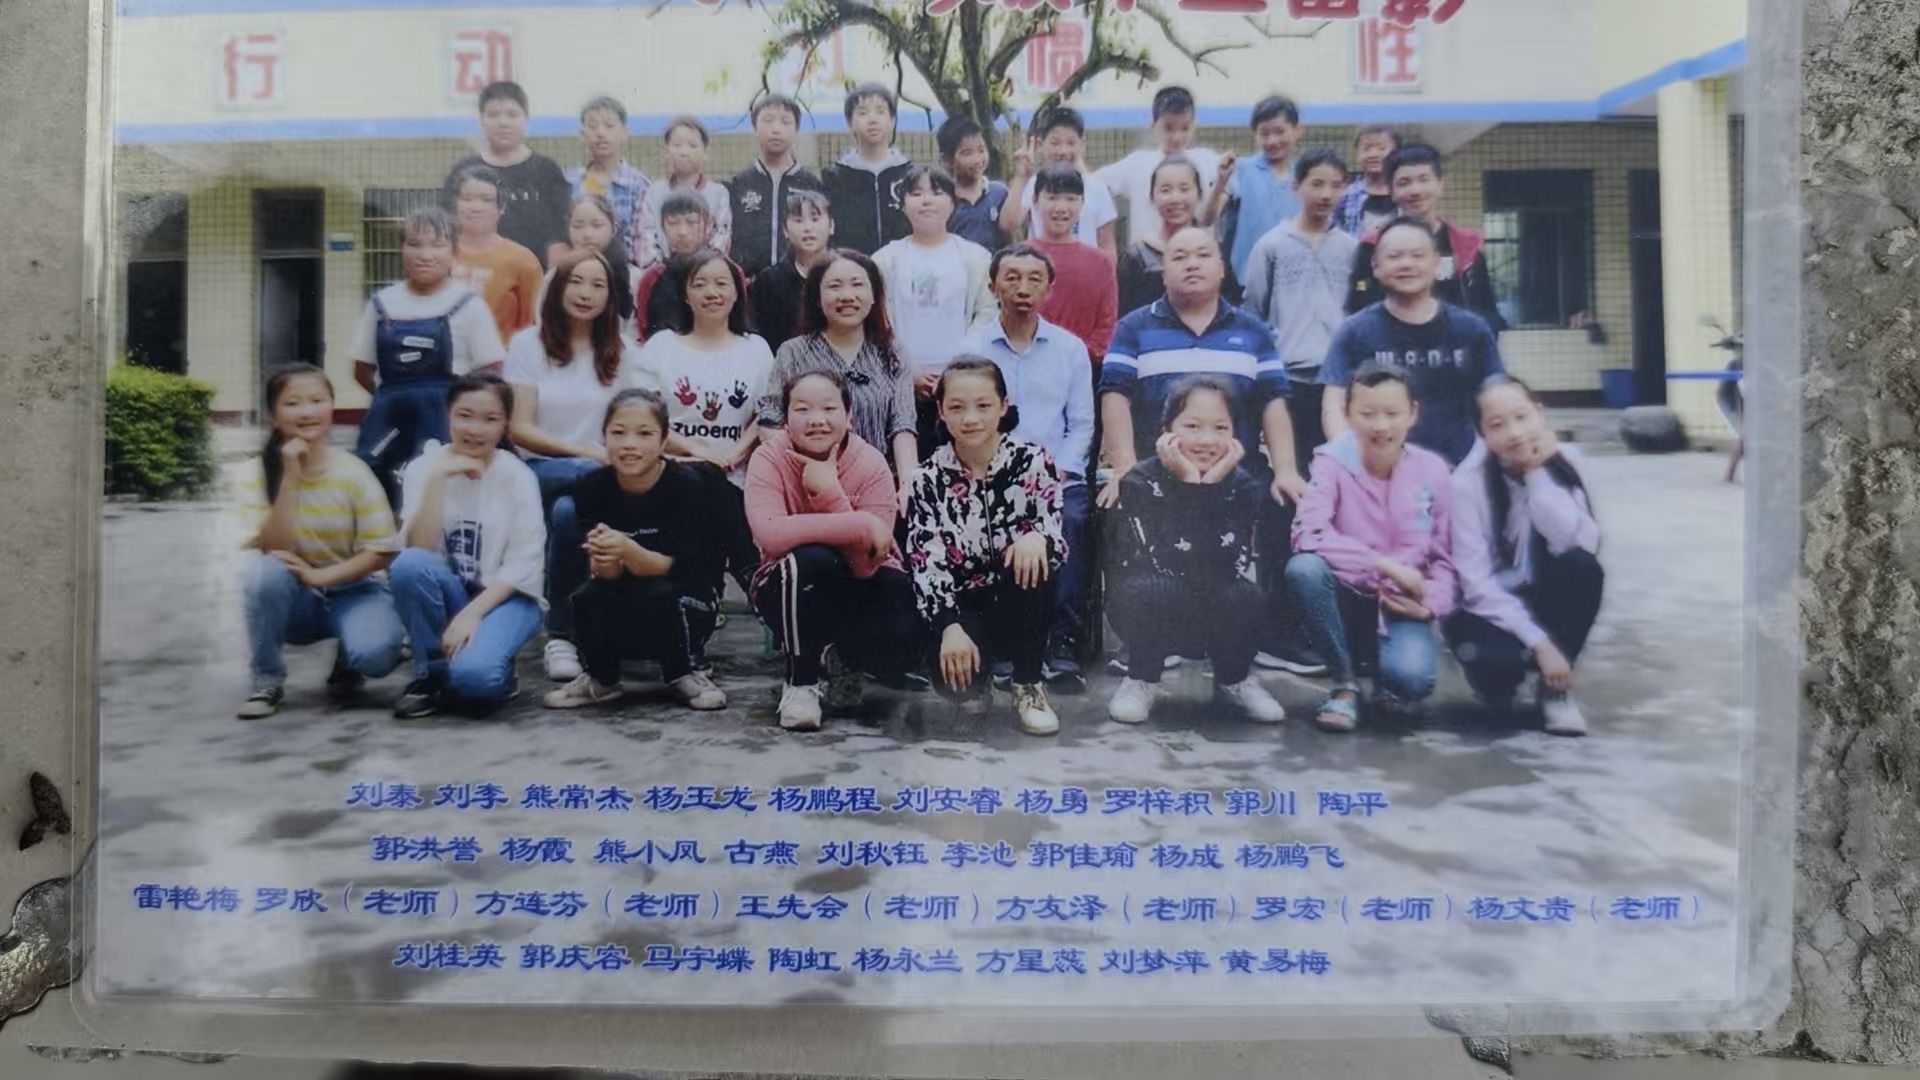 业留影
行动 惯性
W·A·D·E
zuoerqi
刘泰 刘李 熊常杰 杨玉龙 杨鹏程 刘安睿 杨勇 罗梓积 郭川 陶平
郭洪誉 杨霞 熊小凤 古燕 刘秋钰 李池 郭佳瑜 杨成 杨鹏飞
雷艳梅 罗欣（老师）方连芬（老师）王先会（老师）方友泽（老师）罗宏（老师）杨文贵（老师）
刘桂英 郭庆容 马宇蝶 陶虹 杨永兰 方星蕊 刘梦萍 黄易梅